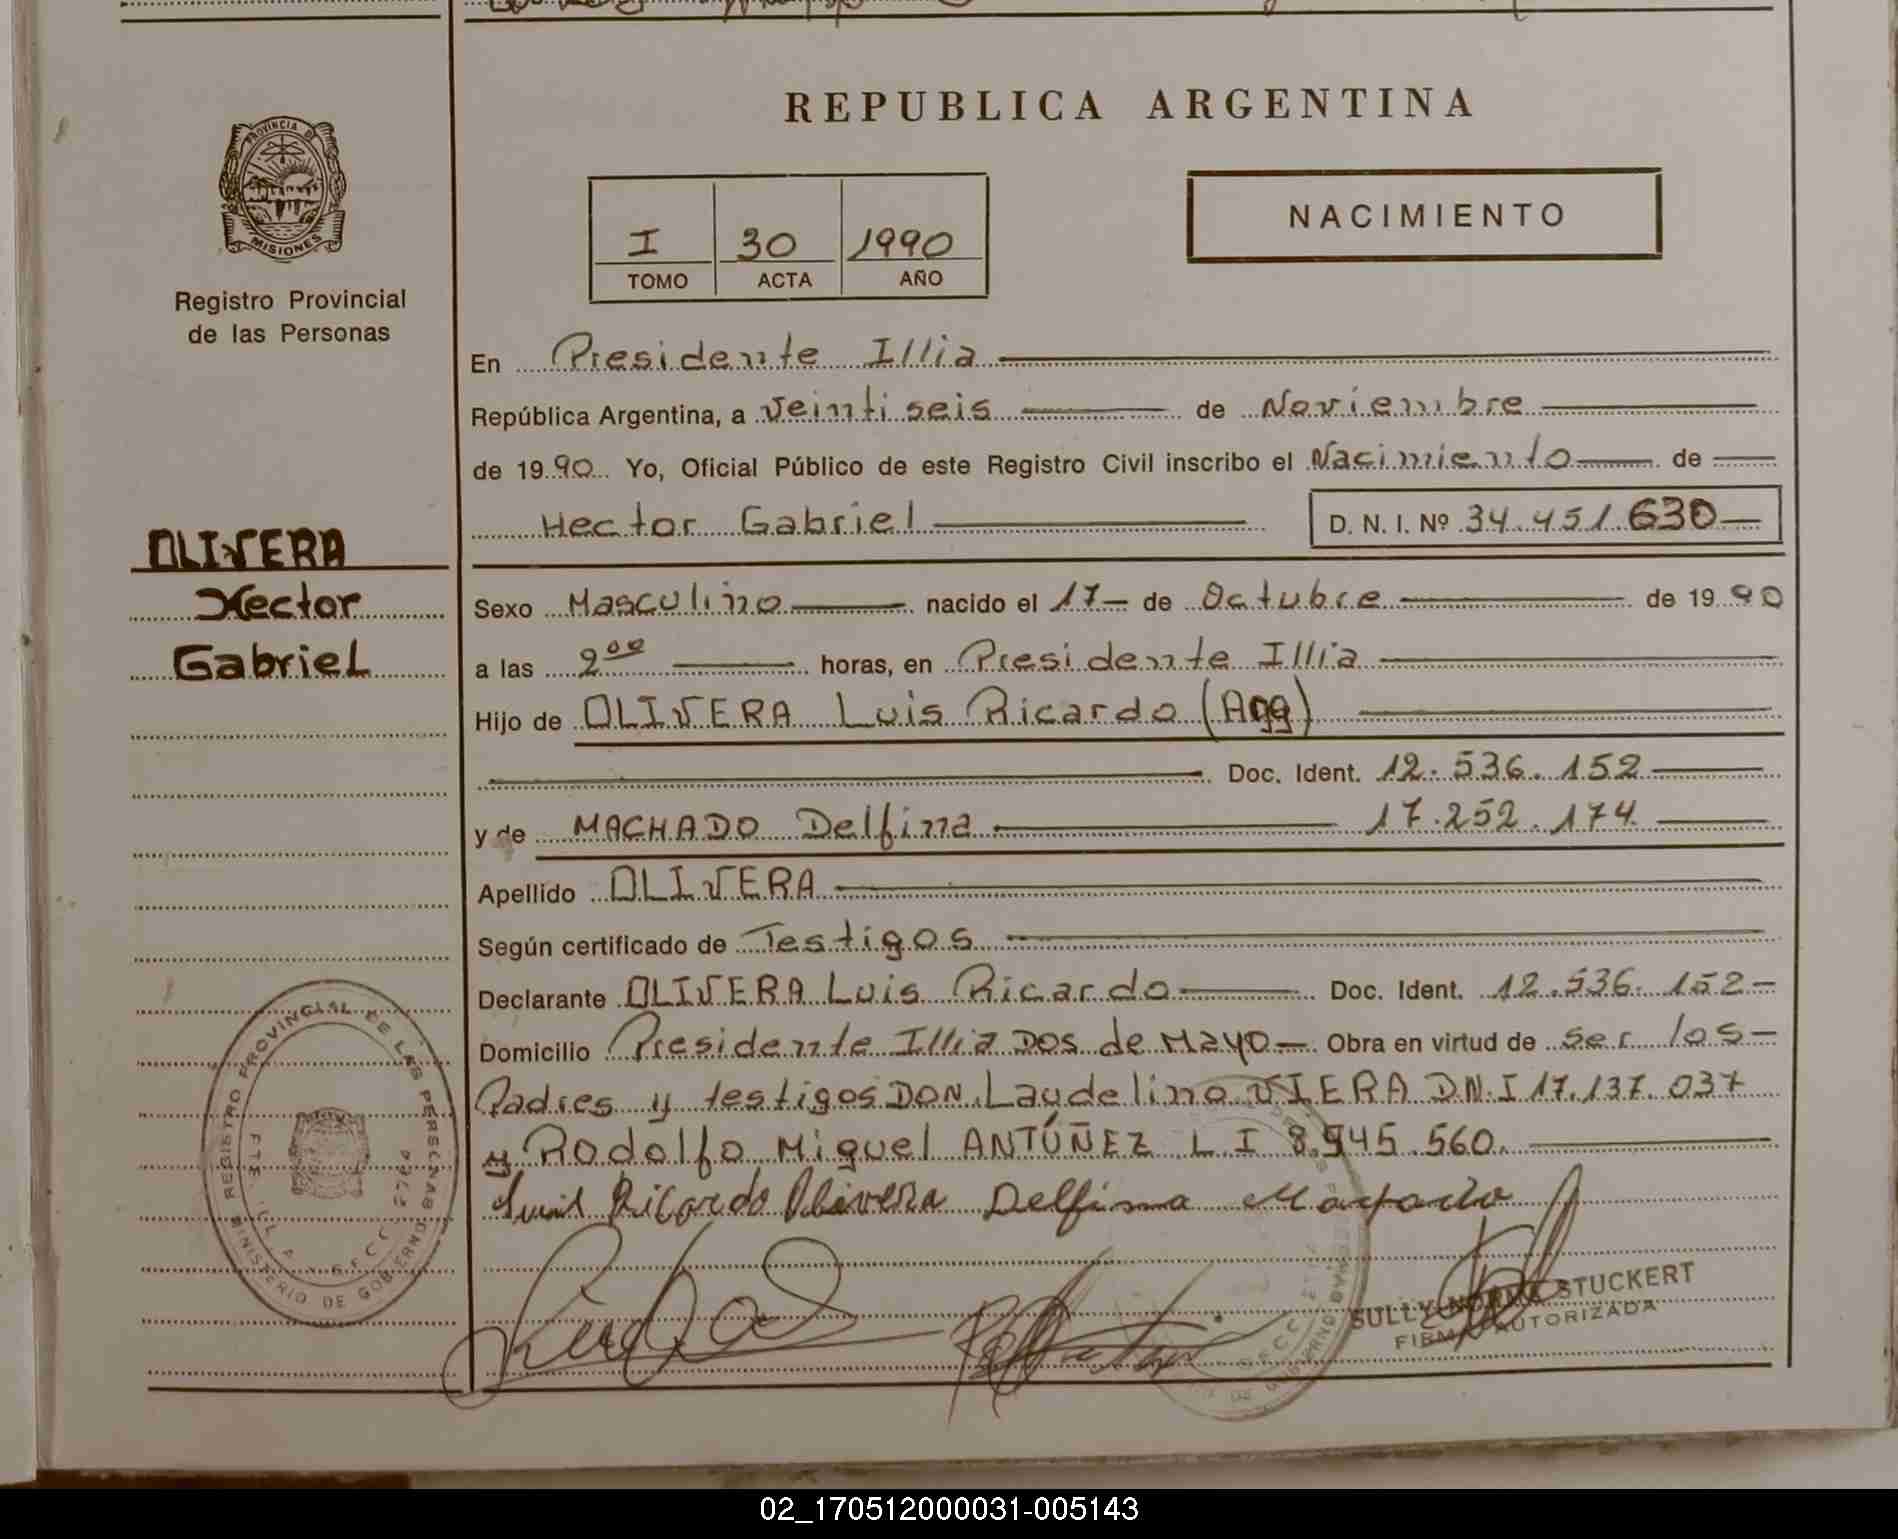 REPUBLICA ARGENTINA
PROVINCIA DE
MISIONES
Registro Provincial
de las Personas
I 30 1990
TOMO ACTA AÑO
NACIMIENTO
En Presidente Illia
República Argentina, a veinti seis de Noviembre
de 1990 Yo, Oficial Público de este Registro Civil inscribo el Nacimiento de
Hector Gabriel D. N. I. Nº 34.451.630
OLIVERA
Hector
Gabriel
Sexo Masculino nacido el 17 de Octubre de 1990
a las 2 00 horas, en Presidente Illia
Hijo de OLIVERA Luis Ricardo (Arg)
Doc. Ident. 12.536.152
y de MACHADO Delfina 17.252.174
Apellido OLIVERA
Según certificado de Testigos
Declarante OLIVERA Luis Ricardo Doc. Ident. 12.536.152
Domicilio Presidente Illia DOS de Mayo Obra en virtud de ser los
Padres y testigos DON Laudelino VIERA D.N.I 17.137.037
y Rodolfo Miguel ANTÚÑEZ L.I 8.945.560.
Luis Ricardo Olivera Delfina Mayado
SULLY NORMA STUCKERT
FIRMA AUTORIZADA
REGISTRO PROVINCIAL DE LAS PERSONAS
MINISTERIO DE GOBIERNO
02_170512000031-005143